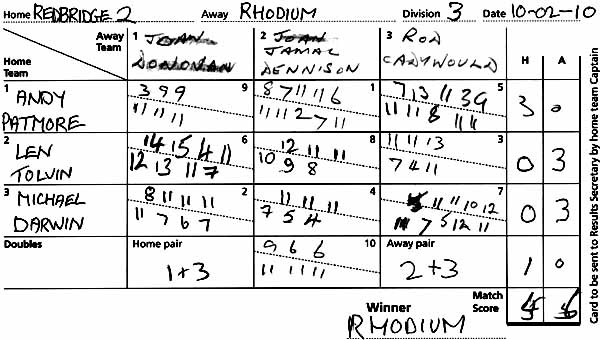 Home REDBRIDGE 2 Away RHODIUM Division 3 Date 10-02-10
Away Team 1 JOAN 2 JOAN 3 ROD H A
Home Team JAMAL DENNISON CADYWOULD
1 ANDY PATMORE 3 9 9 9 8 7 11 11 6 1 7 13 11 3 9 5 3 0
11 11 11 11 11 2 7 11 11 11 8 11 11
2 LEN TOLVIN 14 15 4 11 6 12 11 11 8 11 11 13 3 0 3
12 13 11 7 10 9 8 7 4 11
3 MICHAEL DARWIN 8 11 11 11 2 11 11 11 4 11 11 10 12 7 0 3
11 7 6 7 7 5 4 11 7 5 12 11
Doubles Home pair 9 6 6 10 Away pair 1 0
1+3 11 11 11 2+3
Winner Match Score 4 6
RHODIUM
Card to be sent to Results Secretary by home team Captain